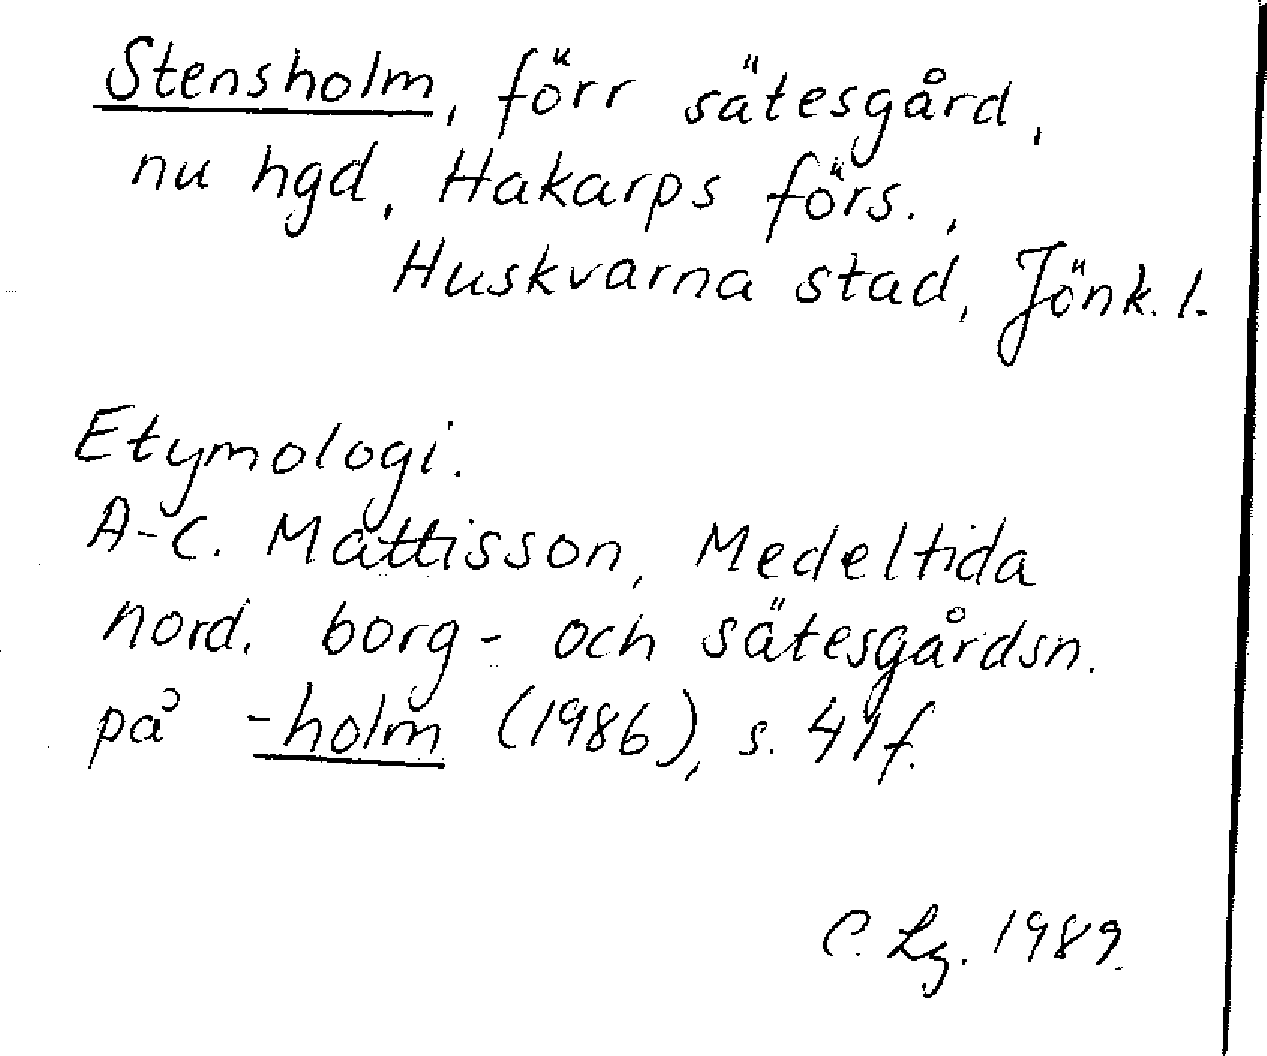 Stensholm, förr sätesgård,
nu hgd, Hakarps förs.,
Huskvarna stad, Jönk. l.
Etymologi.
A-C. Mattisson, Medeltida
nord. borg- och sätesgårdsn.
på -holm (1986), s. 41f.
C. Lg. 1989.